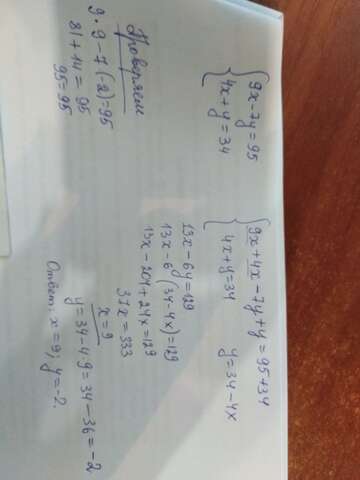 9x-7y=95
4x+y=34
9x+4x-7y+y=95+34
4x+y=34 y=34-4x
13x-6y=129
13x-6(34-4x)=129
13x-204+24x=129
37x=333
x=9
y=34-4·9=34-36=-2
Ответ: x=9; y=-2.
Проверяем
9·9-7(-2)=95
81+14=95
95=95